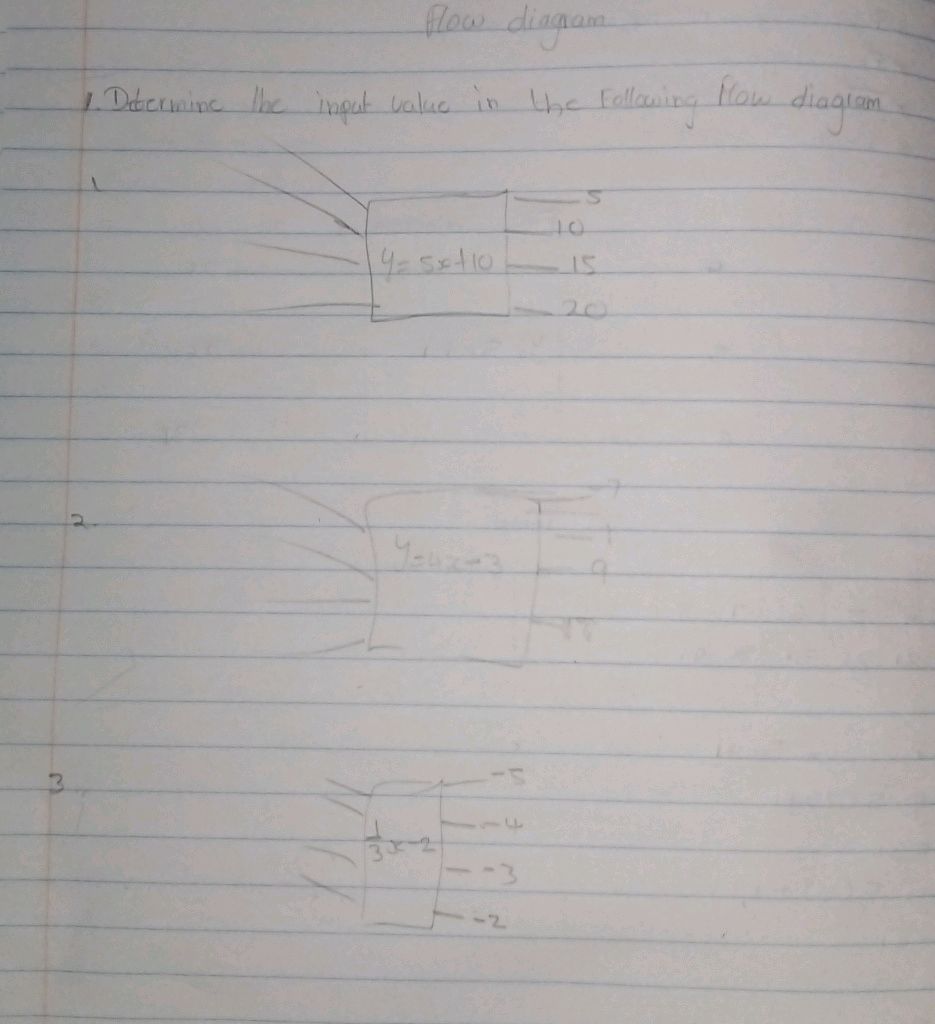 flow diagram
1. Determine the input value in the following flow diagram
1
5
10
y = 5x+10
15
20
2.
y=4x-3
9
3
-5
-4
1/3 x-2
-3
-2